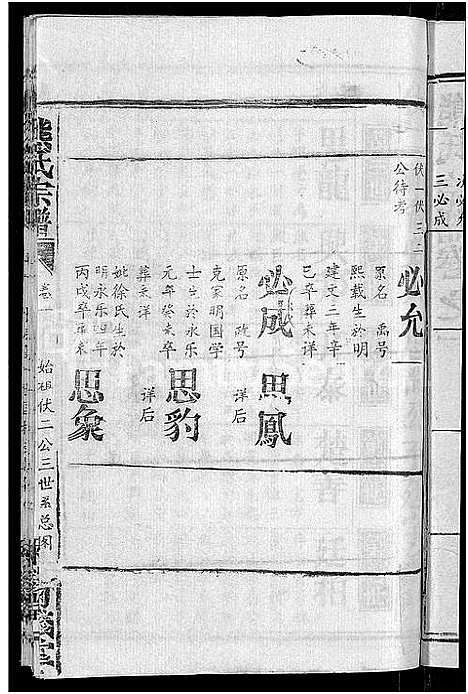 伏一伏三二
公待考
必允
原名禹号
熙载生於明
建文三年辛
巳卒葬未详
必成 思鳳
原名政号
克家明国学
士生於永乐
元年癸未卒
葬未详
思豹
详后
妣徐氏生於
明永乐四年
丙戌卒葬未
详后
思象
熊氏宗譜
卷一
始祖伏二公三世系总图
三必成